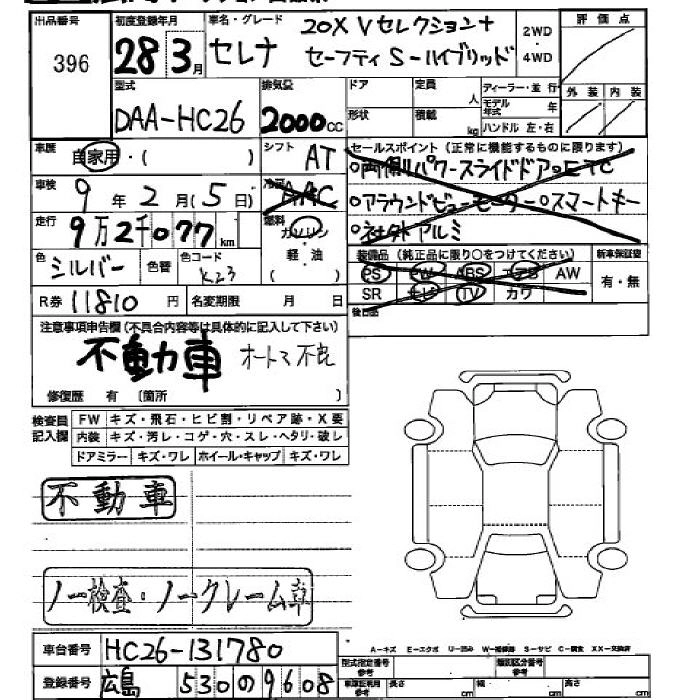 出品番号
396
初度登録年月
28 3月
車名・グレード
セレナ
20X Vセレクション+
セーフティ S-ハイブリッド
2WD
・
4WD
評価点
外装 内装
型式
DAA-HC26
排気量
2000cc
ドア
形状
定員
人
積載
kg
ディーラー・並行
モデル年式 年
ハンドル 左・右
車歴
自家用・( )
シフト
AT
車検
9年2月(5日)
冷房
AAC
走行
9万2千077km
燃料
ガソリン
軽・油
( )
色
シルバー
色替
色コード
K23
R券 11810円
名変期限 月 日
セールスポイント(正常に機能するものに限ります)
○両側パワースライドドア○ETC
○アラウンドビューモニター○スマートキー
○社外アルミ
装備品(純正品に限り○をつけてください)
PS PW ABS エアB AW
SR ナビ TV カワ
新車保証書
有・無
後日品
注意事項申告欄(不具合内容等は具体的に記入して下さい)
不動車 オートマ不良
修復歴 有 〔箇所 〕
検査員
記入欄
FW キズ・飛石・ヒビ割・リペア跡・X要
内装 キズ・汚レ・コゲ・穴・スレ・ヘタリ・破レ
ドアミラー キズ・ワレ ホイール・キャップ キズ・ワレ
不動車
ノー検査・ノークレーム車
車台番号 HC26-131780
登録番号 広島 530 の 9608
A-キズ E-エクボ U-凹み W-補修跡 S-サビ C-腐食 XX-交換済
型式指定番号
参考
類別区分番号
参考
車庫証明用
参考
長さ cm
幅 cm
高さ cm